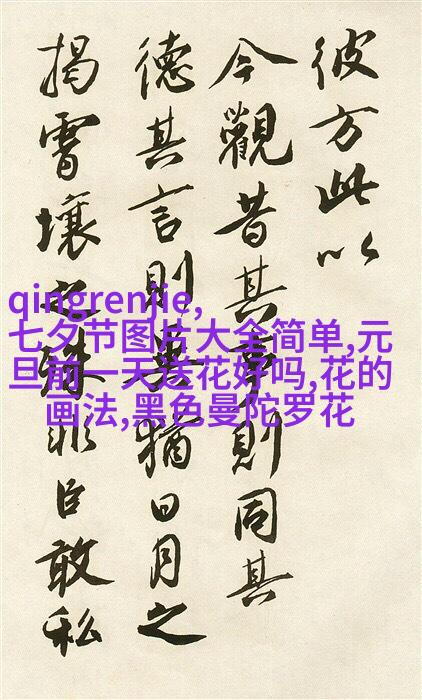 彼方此以
今觀昔其事則同其
德其言則異猶日月之
揭霄壤之殊非臣敢私
qingrenjie,
七夕节图片大全简单,元
旦前一天送花好吗,花的
画法,黑色曼陀罗花